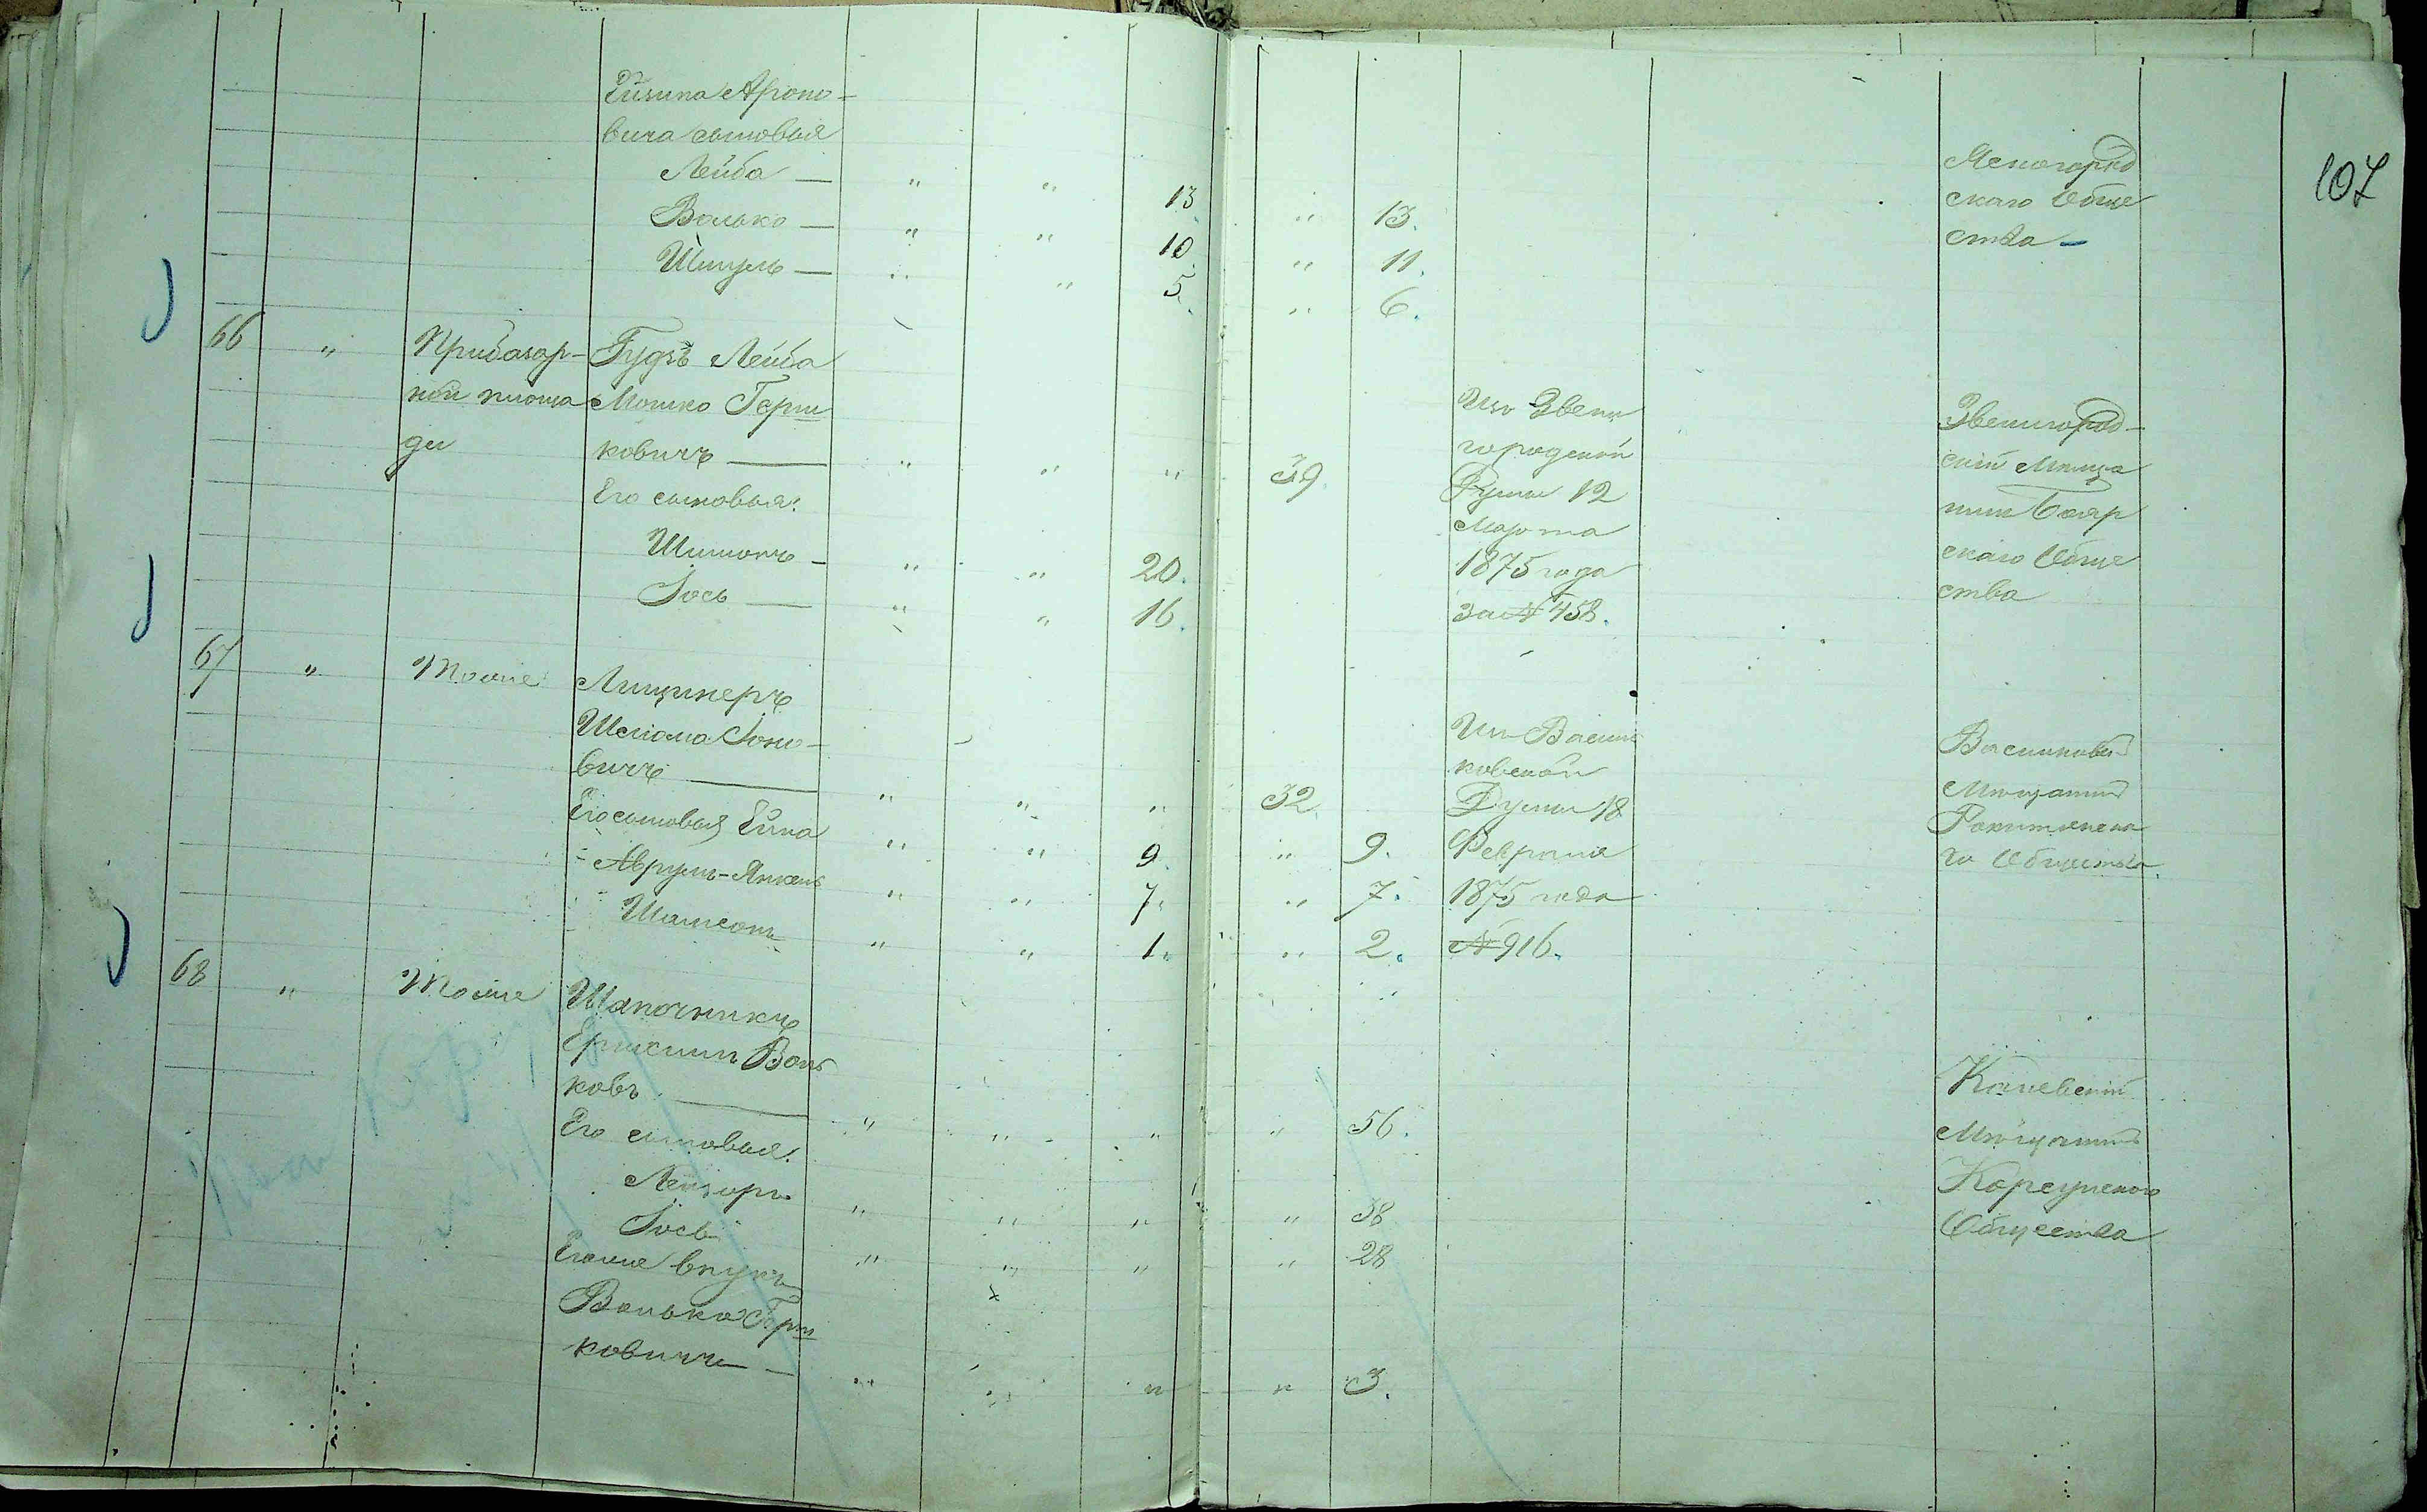 Ароно-
вича сыновья
Лейба — " " 13 " 13.
Волько — " " 10. " 11.
Шмуль — " " 5. " 6.
скаго Обще
ства —
107
66 " Прибазар-
ной площа
ди
Гудзь Лейба
Мошко Герш
ковичъ — " " " 39.
Его сыновья:
Шимонъ — " " 20.
Іось — " " 16.
Изъ Звени
городской
Думы 12
Марта
1875 года
за № 458.
Звенигород-
скій Меща
нинъ Бояр
скаго Обще
ства
67 " Тоже
Лищинеръ
Шлиома Іоно-
вичъ — " " " 32
Его сыновья " " 9. " 9.
Аврумъ-Янкель " " 7. " 7.
Шамсонъ " " 1. " 2.
Изъ Василь
ковской
Думы 18
Февраля
1875 года
№ 916.
Васильковскій
Мещанинъ
Рокитянска
го Общества.
68 " Тоже
Шапочникъ
Воль
ковъ — " " " " 56.
Его сыновья:
Лейзоръ " " " " 38
Іось " " " " 28
Его же внукъ
Волько Герш
ковичъ — " " " " 3.
Каневскій
Мещанинъ
Корсунскаго
Общества